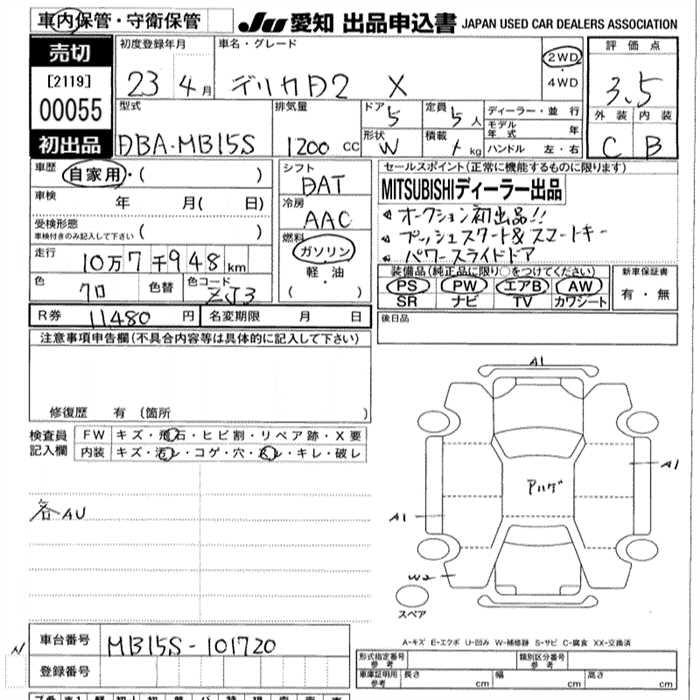 車内保管・守衛保管
JU 愛知 出品申込書 JAPAN USED CAR DEALERS ASSOCIATION
売切
[2119]
00055
初出品
初度登録年月
23 4月
車名・グレード
デリカD2 X
2WD
・
4WD
評価点
3.5
外装 内装
C B
型式
DBA-MB15S
排気量
1200 CC
ドア
5
定員
5人
形状
W
積載
kg
ディーラー・並行
モデル年式 年
ハンドル 左・右
車歴
自家用・( )
車検
年 月( 日)
受検形態
車検付きのみ記入して下さい ( )
走行
10万7千948km
色
クロ
色替
色コード
ZJ3
シフト
DAT
冷房
AAC
燃料
ガソリン
軽油
( ・ )
セールスポイント(正常に機能するものに限ります)
MITSUBISHIディーラー出品
オークション初出品!!
プッシュスタート&スマートキー
パワースライドドア
装備品(純正品に限り○をつけてください)
PS PW エアB AW
SR ナビ TV カワシート
新車保証書
有・無
R券 11480 円 名変期限 月 日
後日品
注意事項申告欄(不具合内容等は具体的に記入して下さい)
修復歴 有 (箇所 )
検査員
記入欄
FW キズ・飛石・ヒビ割・リペア跡・X要
内装 キズ・汚レ・コゲ・穴・スレ・キレ・破レ
各AU
A1
A1
A1
W2
アハゲ
スペア
A-キズ E-エクボ U-凹み W-補修跡 S-サビ C-腐食 XX-交換済
車台番号 MB15S-101720
登録番号
形式指定番号
参考
類別区分番号
参考
車庫証明用
参考
長さ cm 幅 cm 高さ cm